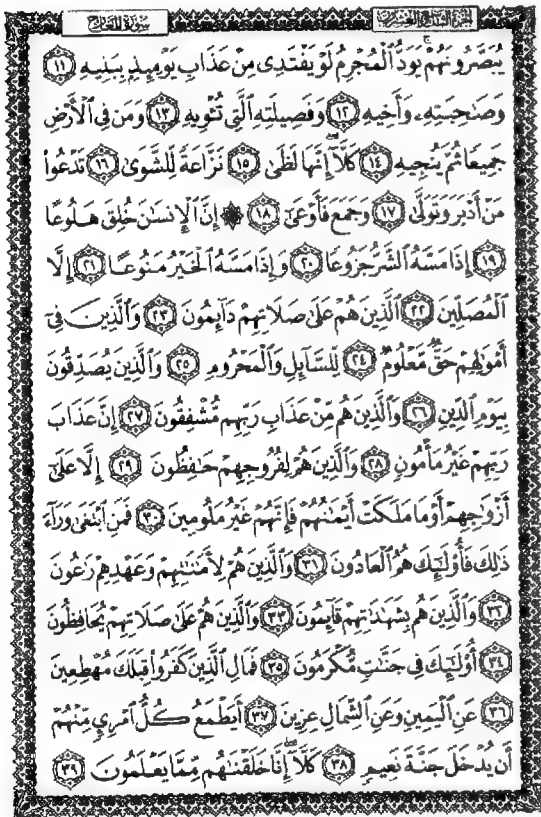 الجزء التاسع والعشرون
سورة المعارج
يُبَصَّرُونَهُمْ يَوَدُّ الْمُجْرِمُ لَوْ يَفْتَدِى مِنْ عَذَابِ يَوْمِئِذٍ بِبَنِيهِ ١١
وَصَٰحِبَتِهِۦ وَأَخِيهِ ١٢ وَفَصِيلَتِهِ الَّتِى تُـْٔوِيهِ ١٣ وَمَن فِى الْأَرْضِ
جَمِيعًا ثُمَّ يُنجِيهِ ١٤ كَلَّآ إِنَّهَا لَظَىٰ ١٥ نَزَّاعَةً لِّلشَّوَىٰ ١٦ تَدْعُوا۟
مَنْ أَدْبَرَ وَتَوَلَّىٰ ١٧ وَجَمَعَ فَأَوْعَىٰٓ ١٨ ۞ إِنَّ الْإِنسَٰنَ خُلِقَ هَلُوعًا
١٩ إِذَا مَسَّهُ الشَّرُّ جَزُوعًا ٢٠ وَإِذَا مَسَّهُ الْخَيْرُ مَنُوعًا ٢١ إِلَّا
الْمُصَلِّينَ ٢٢ الَّذِينَ هُمْ عَلَىٰ صَلَاتِهِمْ دَآئِمُونَ ٢٣ وَالَّذِينَ فِىٓ
أَمْوَٰلِهِمْ حَقٌّ مَّعْلُومٌ ٢٤ لِّلسَّآئِلِ وَالْمَحْرُومِ ٢٥ وَالَّذِينَ يُصَدِّقُونَ
بِيَوْمِ الدِّينِ ٢٦ وَالَّذِينَ هُم مِّنْ عَذَابِ رَبِّهِم مُّشْفِقُونَ ٢٧ إِنَّ عَذَابَ
رَبِّهِمْ غَيْرُ مَأْمُونٍ ٢٨ وَالَّذِينَ هُمْ لِفُرُوجِهِمْ حَٰفِظُونَ ٢٩ إِلَّا عَلَىٰٓ
أَزْوَٰجِهِمْ أَوْ مَا مَلَكَتْ أَيْمَٰنُهُمْ فَإِنَّهُمْ غَيْرُ مَلُومِينَ ٣٠ فَمَنِ ابْتَغَىٰ وَرَآءَ
ذَٰلِكَ فَأُو۟لَٰٓئِكَ هُمُ الْعَادُونَ ٣١ وَالَّذِينَ هُمْ لِأَمَٰنَٰتِهِمْ وَعَهْدِهِمْ رَٰعُونَ
٣٢ وَالَّذِينَ هُم بِشَهَٰدَٰتِهِمْ قَآئِمُونَ ٣٣ وَالَّذِينَ هُمْ عَلَىٰ صَلَاتِهِمْ يُحَافِظُونَ
٣٤ أُو۟لَٰٓئِكَ فِى جَنَّٰتٍ مُّكْرَمُونَ ٣٥ فَمَالِ الَّذِينَ كَفَرُوا۟ قِبَلَكَ مُهْطِعِينَ
٣٦ عَنِ الْيَمِينِ وَعَنِ الشِّمَالِ عِزِينَ ٣٧ أَيَطْمَعُ كُلُّ امْرِئٍ مِّنْهُمْ
أَن يُدْخَلَ جَنَّةَ نَعِيمٍ ٣٨ كَلَّآ إِنَّا خَلَقْنَٰهُم مِّمَّا يَعْلَمُونَ ٣٩